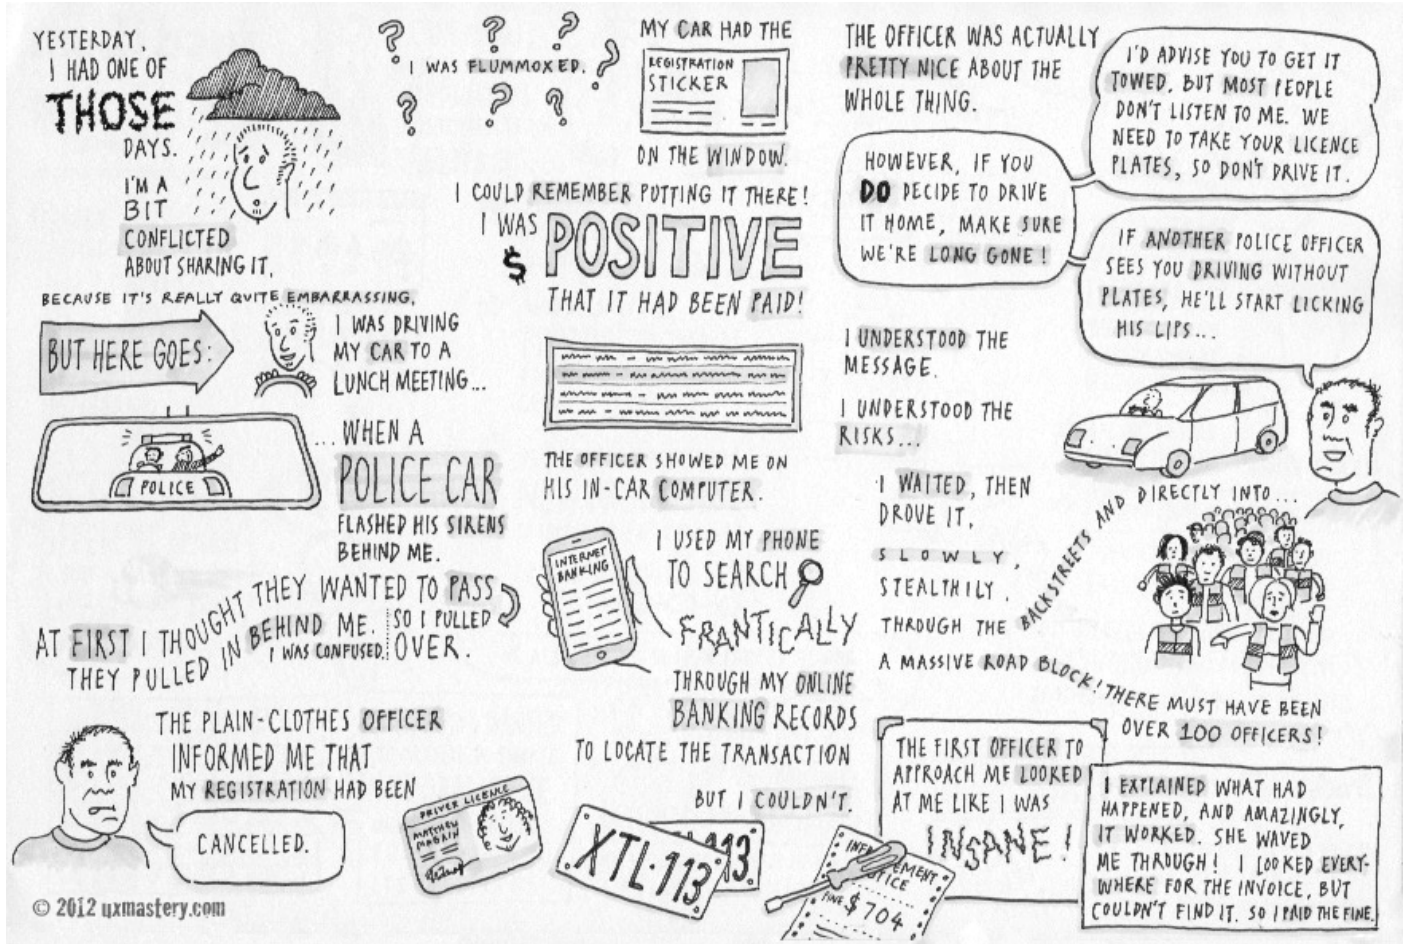 YESTERDAY,
I HAD ONE OF
THOSE
DAYS.
I'M A
BIT
CONFLICTED
ABOUT SHARING IT,
BECAUSE IT'S REALLY QUITE EMBARRASSING.
BUT HERE GOES:
I WAS DRIVING
MY CAR TO A
LUNCH MEETING...
...WHEN A
POLICE CAR
FLASHED HIS SIRENS
BEHIND ME.
POLICE
AT FIRST I THOUGHT THEY WANTED TO PASS
THEY PULLED IN BEHIND ME.
I WAS CONFUSED.
SO I PULLED
OVER.
THE PLAIN-CLOTHES OFFICER
INFORMED ME THAT
MY REGISTRATION HAD BEEN
CANCELLED.
? ? ? ? ? ? ?
I WAS FLUMMOXED.
MY CAR HAD THE
REGISTRATION
STICKER
ON THE WINDOW.
I COULD REMEMBER PUTTING IT THERE!
I WAS
$ POSITIVE
THAT IT HAD BEEN PAID!
THE OFFICER SHOWED ME ON
HIS IN-CAR COMPUTER.
INTERNET
BANKING
I USED MY PHONE
TO SEARCH
FRANTICALLY
THROUGH MY ONLINE
BANKING RECORDS
TO LOCATE THE TRANSACTION
BUT I COULDN'T.
DRIVER LICENCE
MATTHEW
MAGAIN
XTL·113
113
NOTICE
FINE $704
THE OFFICER WAS ACTUALLY
PRETTY NICE ABOUT THE
WHOLE THING.
I'D ADVISE YOU TO GET IT
TOWED. BUT MOST PEOPLE
DON'T LISTEN TO ME. WE
NEED TO TAKE YOUR LICENCE
PLATES, SO DON'T DRIVE IT.
HOWEVER, IF YOU
DO DECIDE TO DRIVE
IT HOME, MAKE SURE
WE'RE LONG GONE!
IF ANOTHER POLICE OFFICER
SEES YOU DRIVING WITHOUT
PLATES, HE'LL START LICKING
HIS LIPS...
I UNDERSTOOD THE
MESSAGE.
I UNDERSTOOD THE
RISKS...
I WAITED, THEN
DROVE IT,
SLOWLY,
STEALTHILY.
THROUGH THE BACKSTREETS AND DIRECTLY INTO...
A MASSIVE ROAD BLOCK! THERE MUST HAVE BEEN
OVER 100 OFFICERS!
THE FIRST OFFICER TO
APPROACH ME LOOKED
AT ME LIKE I WAS
INSANE!
I EXPLAINED WHAT HAD
HAPPENED, AND AMAZINGLY,
IT WORKED. SHE WAVED
ME THROUGH! I LOOKED EVERY-
WHERE FOR THE INVOICE, BUT
COULDN'T FIND IT. SO I PAID THE FINE.
© 2012 uxmastery.com